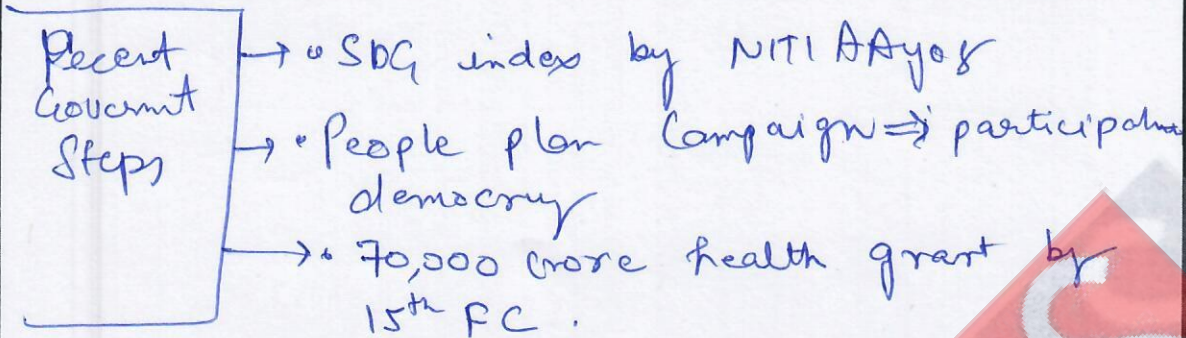 Recent
Governmt
Steps
→ • SDG index by NITI AAyog
→ • People plan Campaign ⇒ participatory
democracy
→ • 70,000 crore health grant by
15th FC.